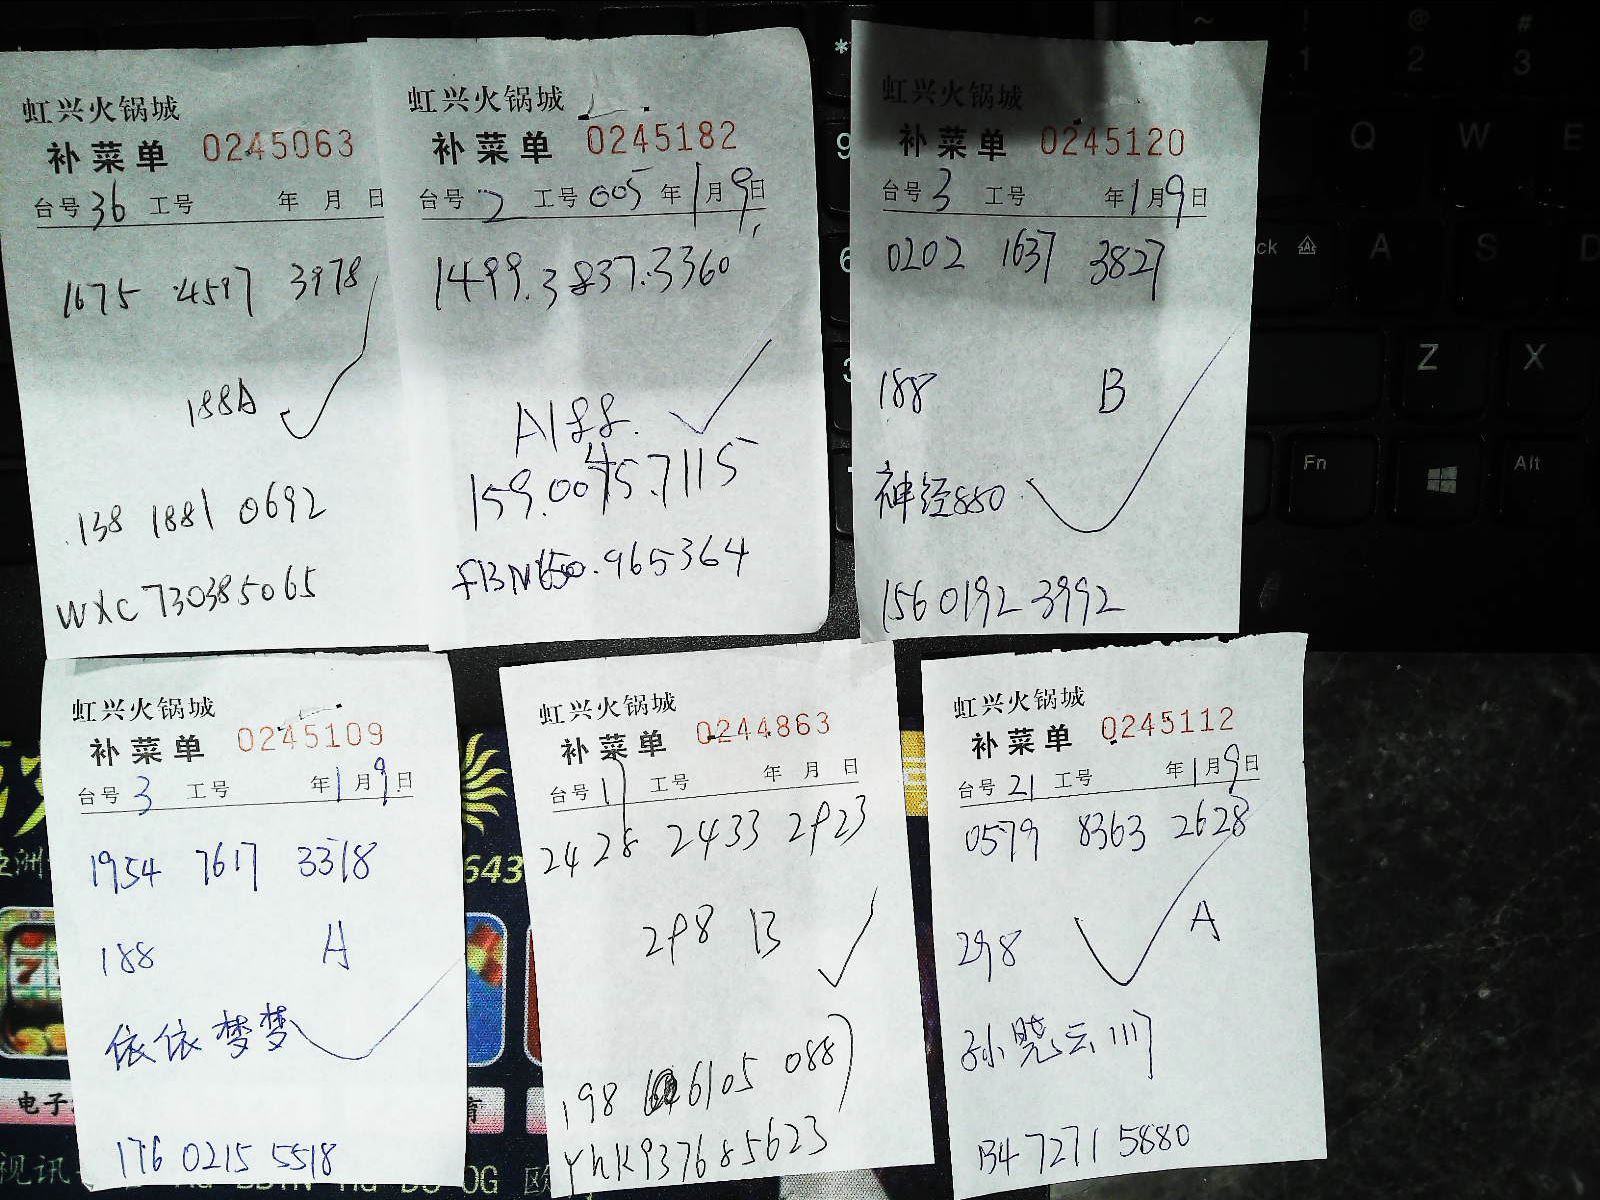 虹兴火锅城
补菜单 0245063
台号 36 工号 年 月 日
1675 4597 3978
188A
138 1881 0692
WXC730385065
虹兴火锅城
补菜单 0245182
台号 2 工号 005 年 1 月 9 日
1499.3837.3360
A188.
159.0045.7115
965364
虹兴火锅城
补菜单 0245120
台号 3 工号 年 1 月 9 日
0202 1637 3827
188 B
神经880
156 0192 3992
虹兴火锅城
补菜单 0245109
台号 3 工号 年 1 月 9 日
1954 7617 3318
188 A
依依梦梦
176 0215 5518
虹兴火锅城
补菜单 0244863
台号 17 工号 年 月 日
2428 2433 2923
298 B
198 6105 0887
YhK937685623
虹兴火锅城
补菜单 0245112
台号 21 工号 年 1 月 9 日
0579 8363 2628
298 A
孙晓云1117
134 7271 5880
643
电子
视讯
Q W E
A S D
Z X
Fn Alt